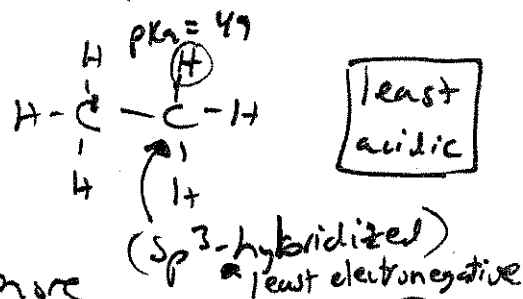 pKa = 49
H H
H - C - C - H
H H
least
acidic
(Sp³-hybridized)
least electronegative
more